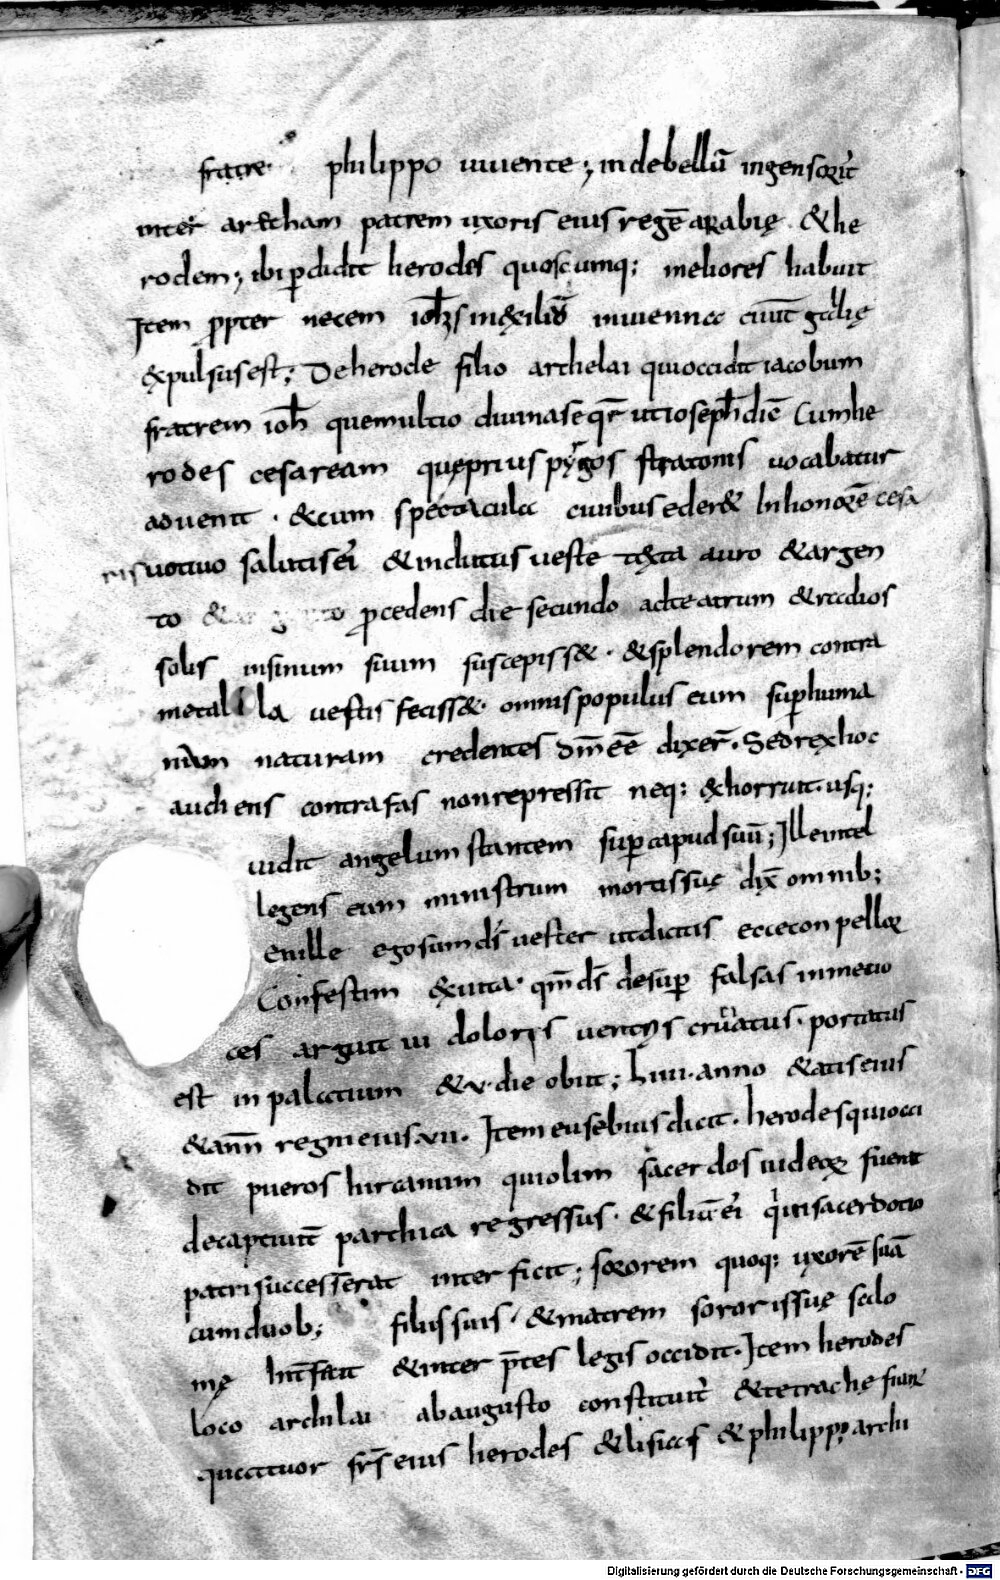 fratre philippo uiuente; inde bellū ingens orit̄
inter aretham patrem uxoris eius regē arabię &he
rodem; ibi p̄didit herodes quoscumq; meliores habuit
Item ꝓpter necem ioħis in exiliū in uienna ciuit̄ gallię
expulsus est; De herode filio archelai qui occidit iacobum
fratrem ioħ quem ultio diuina seqr̄ ut ioseph dic̄ Cum he
rodes cesaream quę prius pyrgos stratonis uocabatur
aduenit · &cum spectacula ciuibus eder& In honorē cesa
ris uotiuo salutis ei &indutus ueste texta auro &argen
to ꝓcedens die secundo ad teatrum &radios
solis in sinum suum suscepiss& · &splendorem contra
metalla uestis feciss& · omnis populus eum suphuma
nam naturam credentes dm̄ eē dixer̄ · Sed rex hoc
audiens contra fas non repressit neq; exhorruit · usq;
uidit angelum stantem sup caput suū; Ille intel
legens eum ministrum mortis suę dix̄ omnib;
en ille ego sum ds̄ uester ut dicitis ecce conpellor
Confestim ex uita · qm̄ ds̄ desup falsas inmetio
ces arguit ui doloris uentris cruatus · portatus
est in palatium &·v· die obiit; Liiii · anno &atis eius
&ann̄ regni eius · xvi. Item eusebius dicit · herodes qui occi
dit pueros hircanum qui olim sacerdos iudeoꝝ fuerat
de captiuit̄ parthica regressus · &filiū ei qui in sacerdotio
patri successerat interficit; sororem quoq; uxorē suā
cum duob; filiis suis · &matrem sororis suę sedo
mę int̄ficit &inter p̄tes legis occidit · Item herodes
loco archilai ab augusto constituit̄ &tetrache fiunt
quattuor frs̄ eius herodes &lisias &philipp; archi
Digitalisierung gefördert durch die Deutsche Forschungsgemeinschaft - DFG